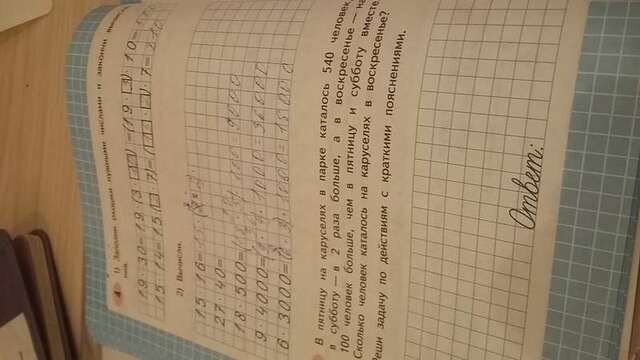 4 1) Заполни окошки нужными числами и закончи
ния.
19 · 30 = 19 · (3 · 10) = (19 · 3) · 10 =
15 · 14 = 15 · ( · 7) = ( · ) · 7 = 210
2) Вычисли.
15 · 16 = 15 ·
27 · 40 =
18 · 500 = 100 = 9000
9 · 4000 = · 1000 = 36000
6 · 3000 = (6 · 3) · 1000 = 18000
В пятницу на каруселях в парке каталось 540 человек,
в субботу — в 2 раза больше, а в воскресенье — на
100 человек больше, чем в пятницу и субботу вместе.
Сколько человек каталось на каруселях в воскресенье?
Реши задачу по действиям с краткими пояснениями.
Ответ: